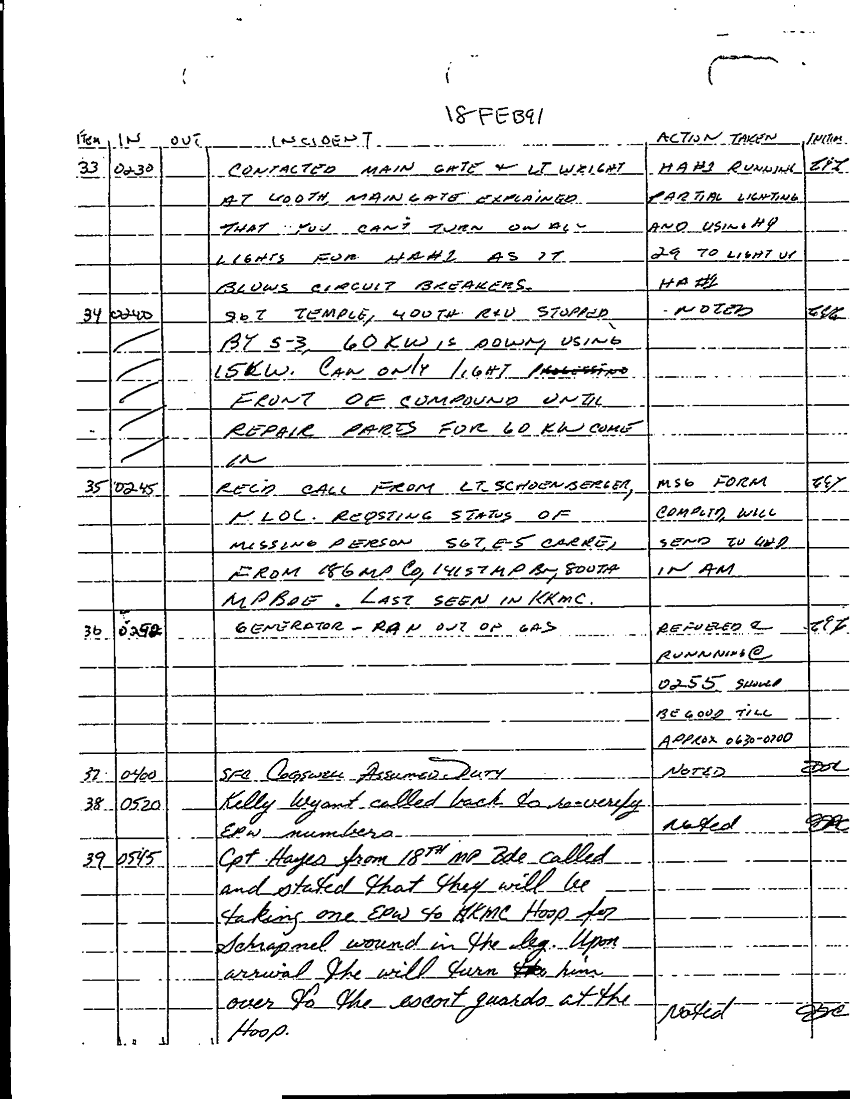 18 FEB 91
ITEM IN OUT INCIDENT ACTION TAKEN INITIAL
33 0230 CONTACTED MAIN GATE & LT WRIGHT HA#1 RUNNING
AT 400TH, MAIN GATE EXPLAINED PARTIAL LIGHTING
THAT YOU CAN'T TURN ON ALL AND USING H9
LIGHTS FOR HA#1 AS IT 29 TO LIGHT UP
BLOWS CIRCUIT BREAKERS. HA #1
34 0240 SGT TEMPLE, 400TH R&U STOPPED - NOTED
BY S-3, 60 KW IS DOWN, USING
15KW. CAN ONLY LIGHT
FRONT OF COMPOUND UNTIL
REPAIR PARTS FOR 60 KW COME
IN
35 0245 REC'D CALL FROM LT. SCHOENBERGER, MSG FORM
N LOC. REQSTING STATUS OF COMPLTD, WILL
MISSING PERSON SGT, E-5 CARRE, SEND TO
FROM 186 MP Co, 141ST MP Bn, 800TH IN AM
MP BDE. LAST SEEN IN KKMC.
36 GENERATOR - RAN OUT OF GAS REFUELED &
RUNNNING @
0255 SHOULD
BE GOOD TILL
APPROX 0630-0700
37 0400 SFC COGSWELL ASSUMED DUTY NOTED
38 0520 Kelly Wyant called back to re-verify
EPW numbers Noted
39 0545 Cpt Hayes from 18TH MP Bde called
and stated that they will be
taking one EPW to KKMC Hosp for
Schrapnel wound in the leg. Upon
arrival the will turn him
over to the escort guards at the Noted
Hosp.